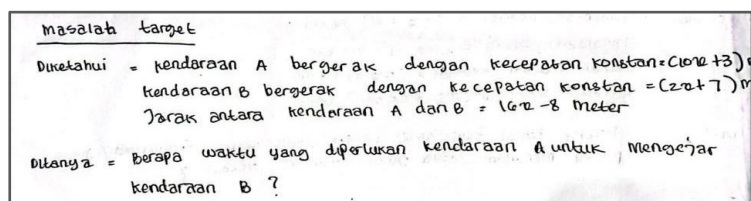 masalah target
Diketahui = kendaraan A bergerak dengan kecepatan konstan = (10x + 3)
kendaraan B bergerak dengan kecepatan konstan = (2x + 7) m
Jarak antara kendaraan A dan B = 16x - 8 Meter
Ditanya = Berapa waktu yang diperlukan kendaraan A untuk Mengejar
kendaraan B ?